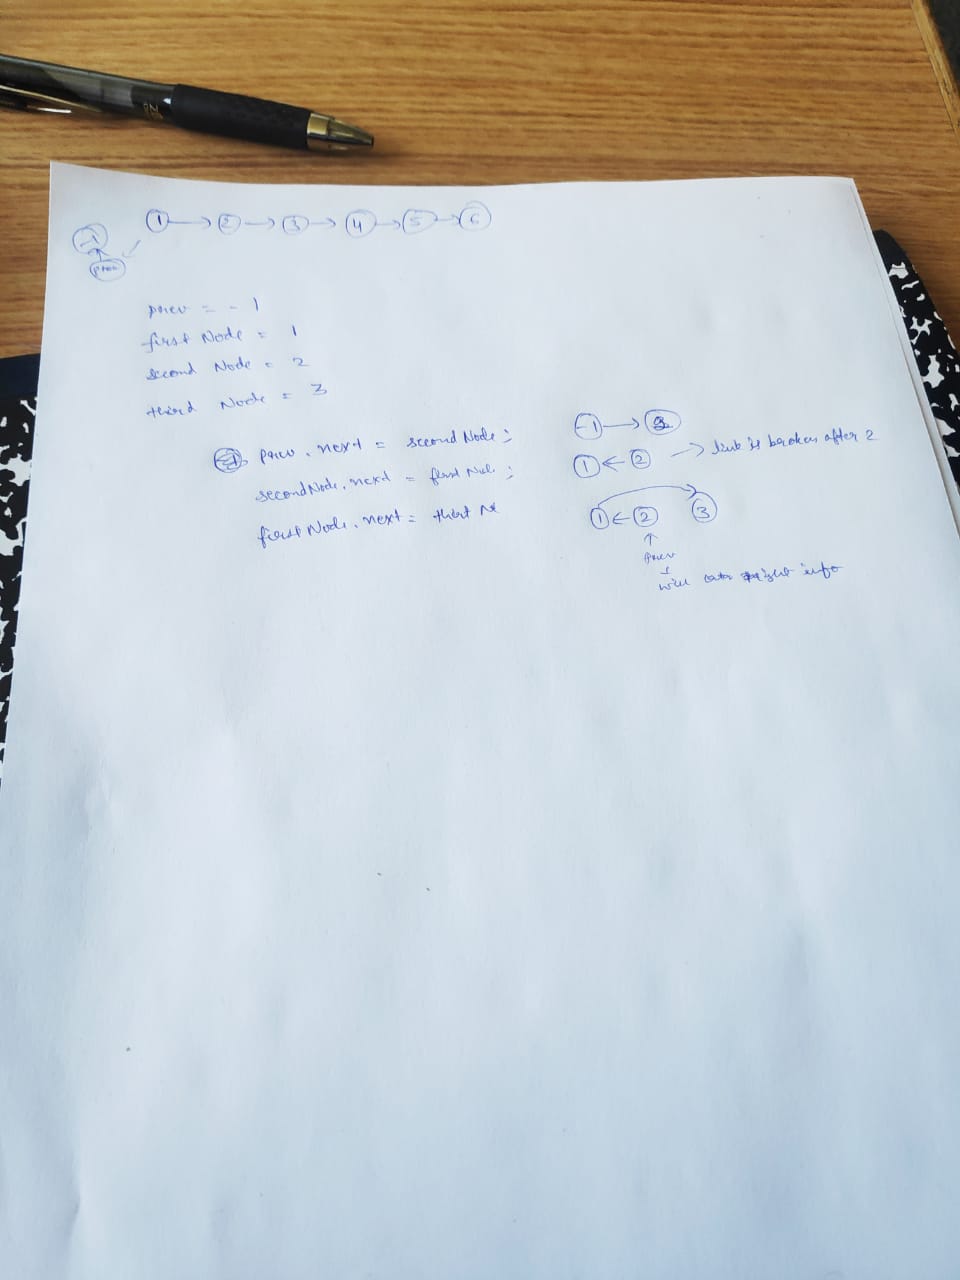 1 → 2 → 3 → 4 → 5 → 6
-1
prev
prev = -1
first Node = 1
second Node = 2
third Node = 3
prev.next = second Node;
secondNode.next = first Node;
first Node.next = third
-1 → 2
1 ← 2 → link is broken after 2
1 ← 2 3
prev
will info